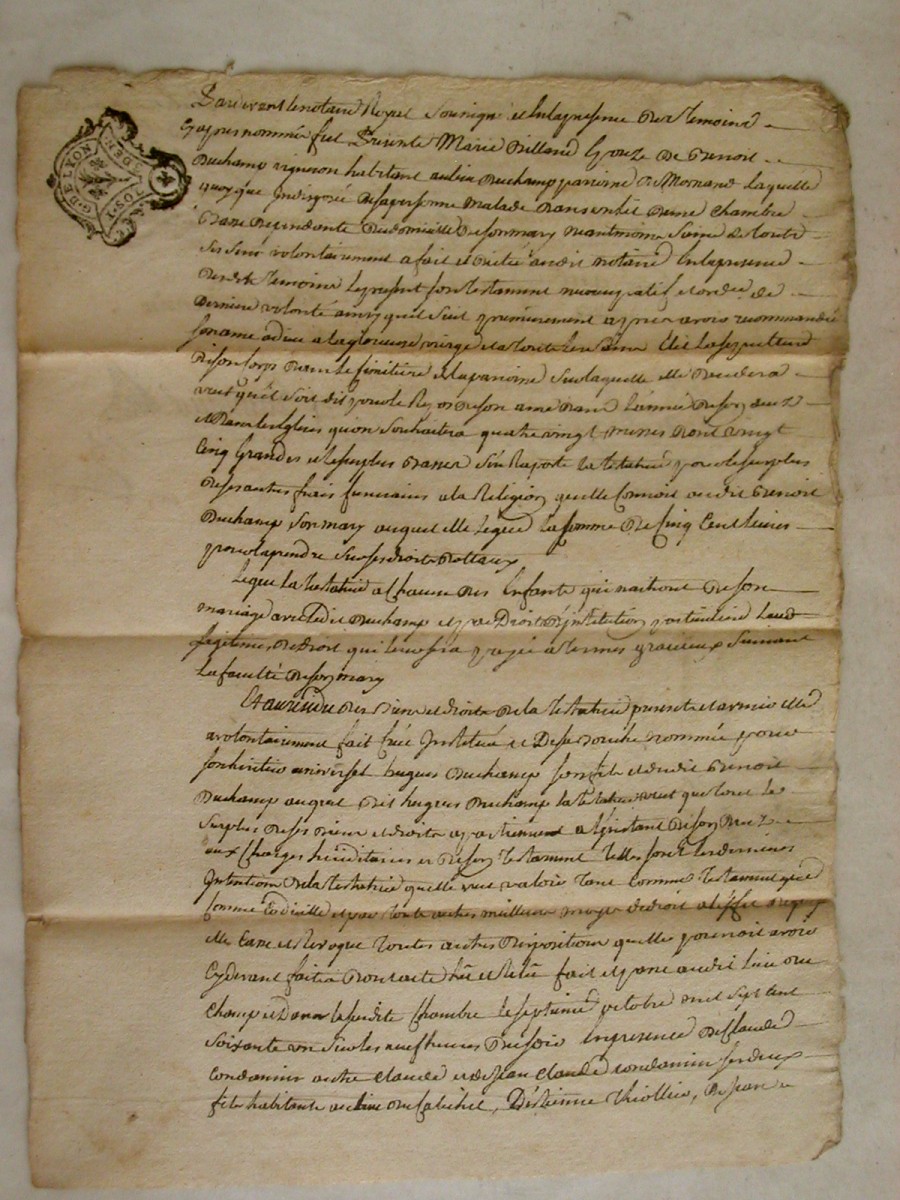 G. DE LYON
DEN. DIX
Pardevant le notaire Royal Soussigné et en la presence des temoins
cy apres nommés fut presente Marie Billand Epouze de Benoit
Duchamp vigneron habitant au lieu Duchamp paroisse de Mornand laquelle
quoy que indisposée de sa personne malade dans un lit d'une chambre
basse dependante du domicille de son mary neantmoins saine de touts
ses sens volontairement a fait et dicté audit notaire en la presence
desdits temoins le present son testament nuncupatif et ordce. de
derniere volonté ainsy quil suit premierement apres avoir recommandé
son ame a dieu a la glorieuse vierge et a touts les saints élit la sepulture
de son corps dans le cimitiere de la paroisse sur laquelle elle decedera
veut qu'il soit dit pour le repos de son ame dans l'année de son decez
et dans les Eglises qu'on souhaitera quatre vingt messes dont vingt
cinq grandes et le surplus basses s'en raporte la testatrice pour le surplus
de ses autres frais funeraires a la Religion quelle connoit audit Benoit
Duchamp son mary auquel elle legue la somme de cinq cent livres
pour la prendre sur ses droits dottaux
Legue la testatrice a chacun des Enfants qui naitront de son
mariage avec ledit Duchamp et par Droit d'institution particuliere leurs
legitimes de droit qui leur sera payée a termes gracieux suivant
la faculté de son mary
Et au residu des biens et droits de la testatrice presents et avenir elle
a volontairement fait créé institué et de sa bouche nommée pour
son heritier universel hugues Duchamp son fils et dudit Benoit
Duchamp auquel dit hugues Duchamp la testatrice veut que tout le
surplus de ses biens et droits apartiennent a l'instant de son decez
aux charges héréditaires et de son testament telles sont les dernieres
intentions de la testatrice quelle veut valoir tant comme testament que
comme codicille et par toute autres meilleurs moyen de droit a l'effet de quoy
elle casse et revoque toutes autres dispositions quelle pourroit avoir
cy devant faites dont acte lû et relû fait et passé audit lieu du
champ et dans la susdite chambre le septieme octobre mil sept cent
soixante un sur les neuf heures du soir en presence de Claude
condamin autre claude et de jean claude condamin ses deux
fils habitants au lieu du , D'étienne Thiollier, de jean